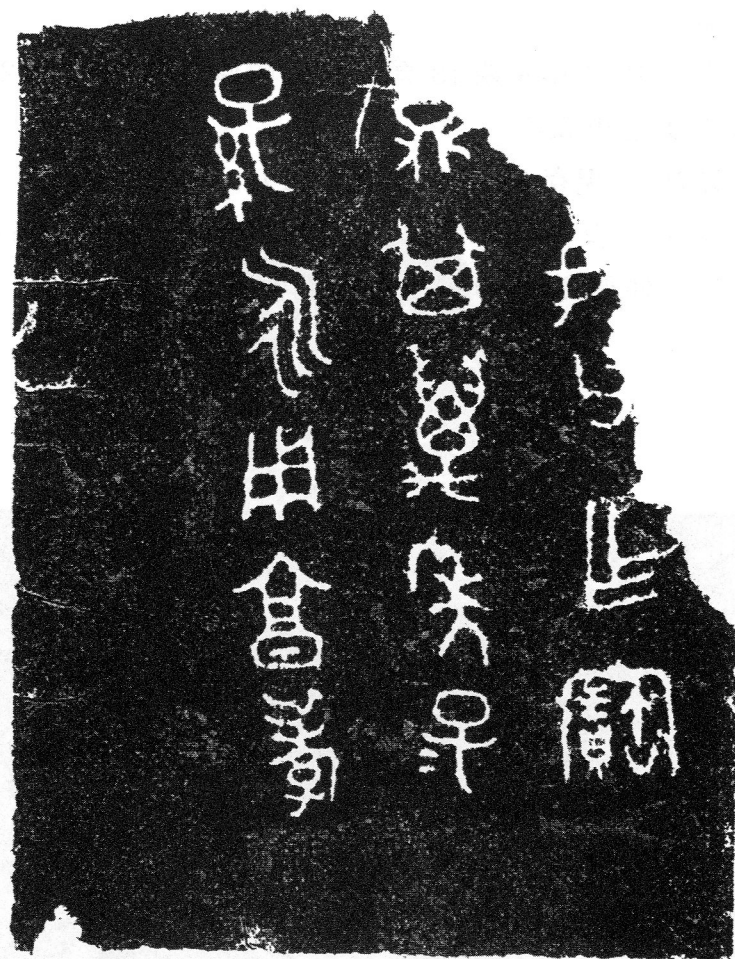 乍寶
其萬年子=
孫永用享孝